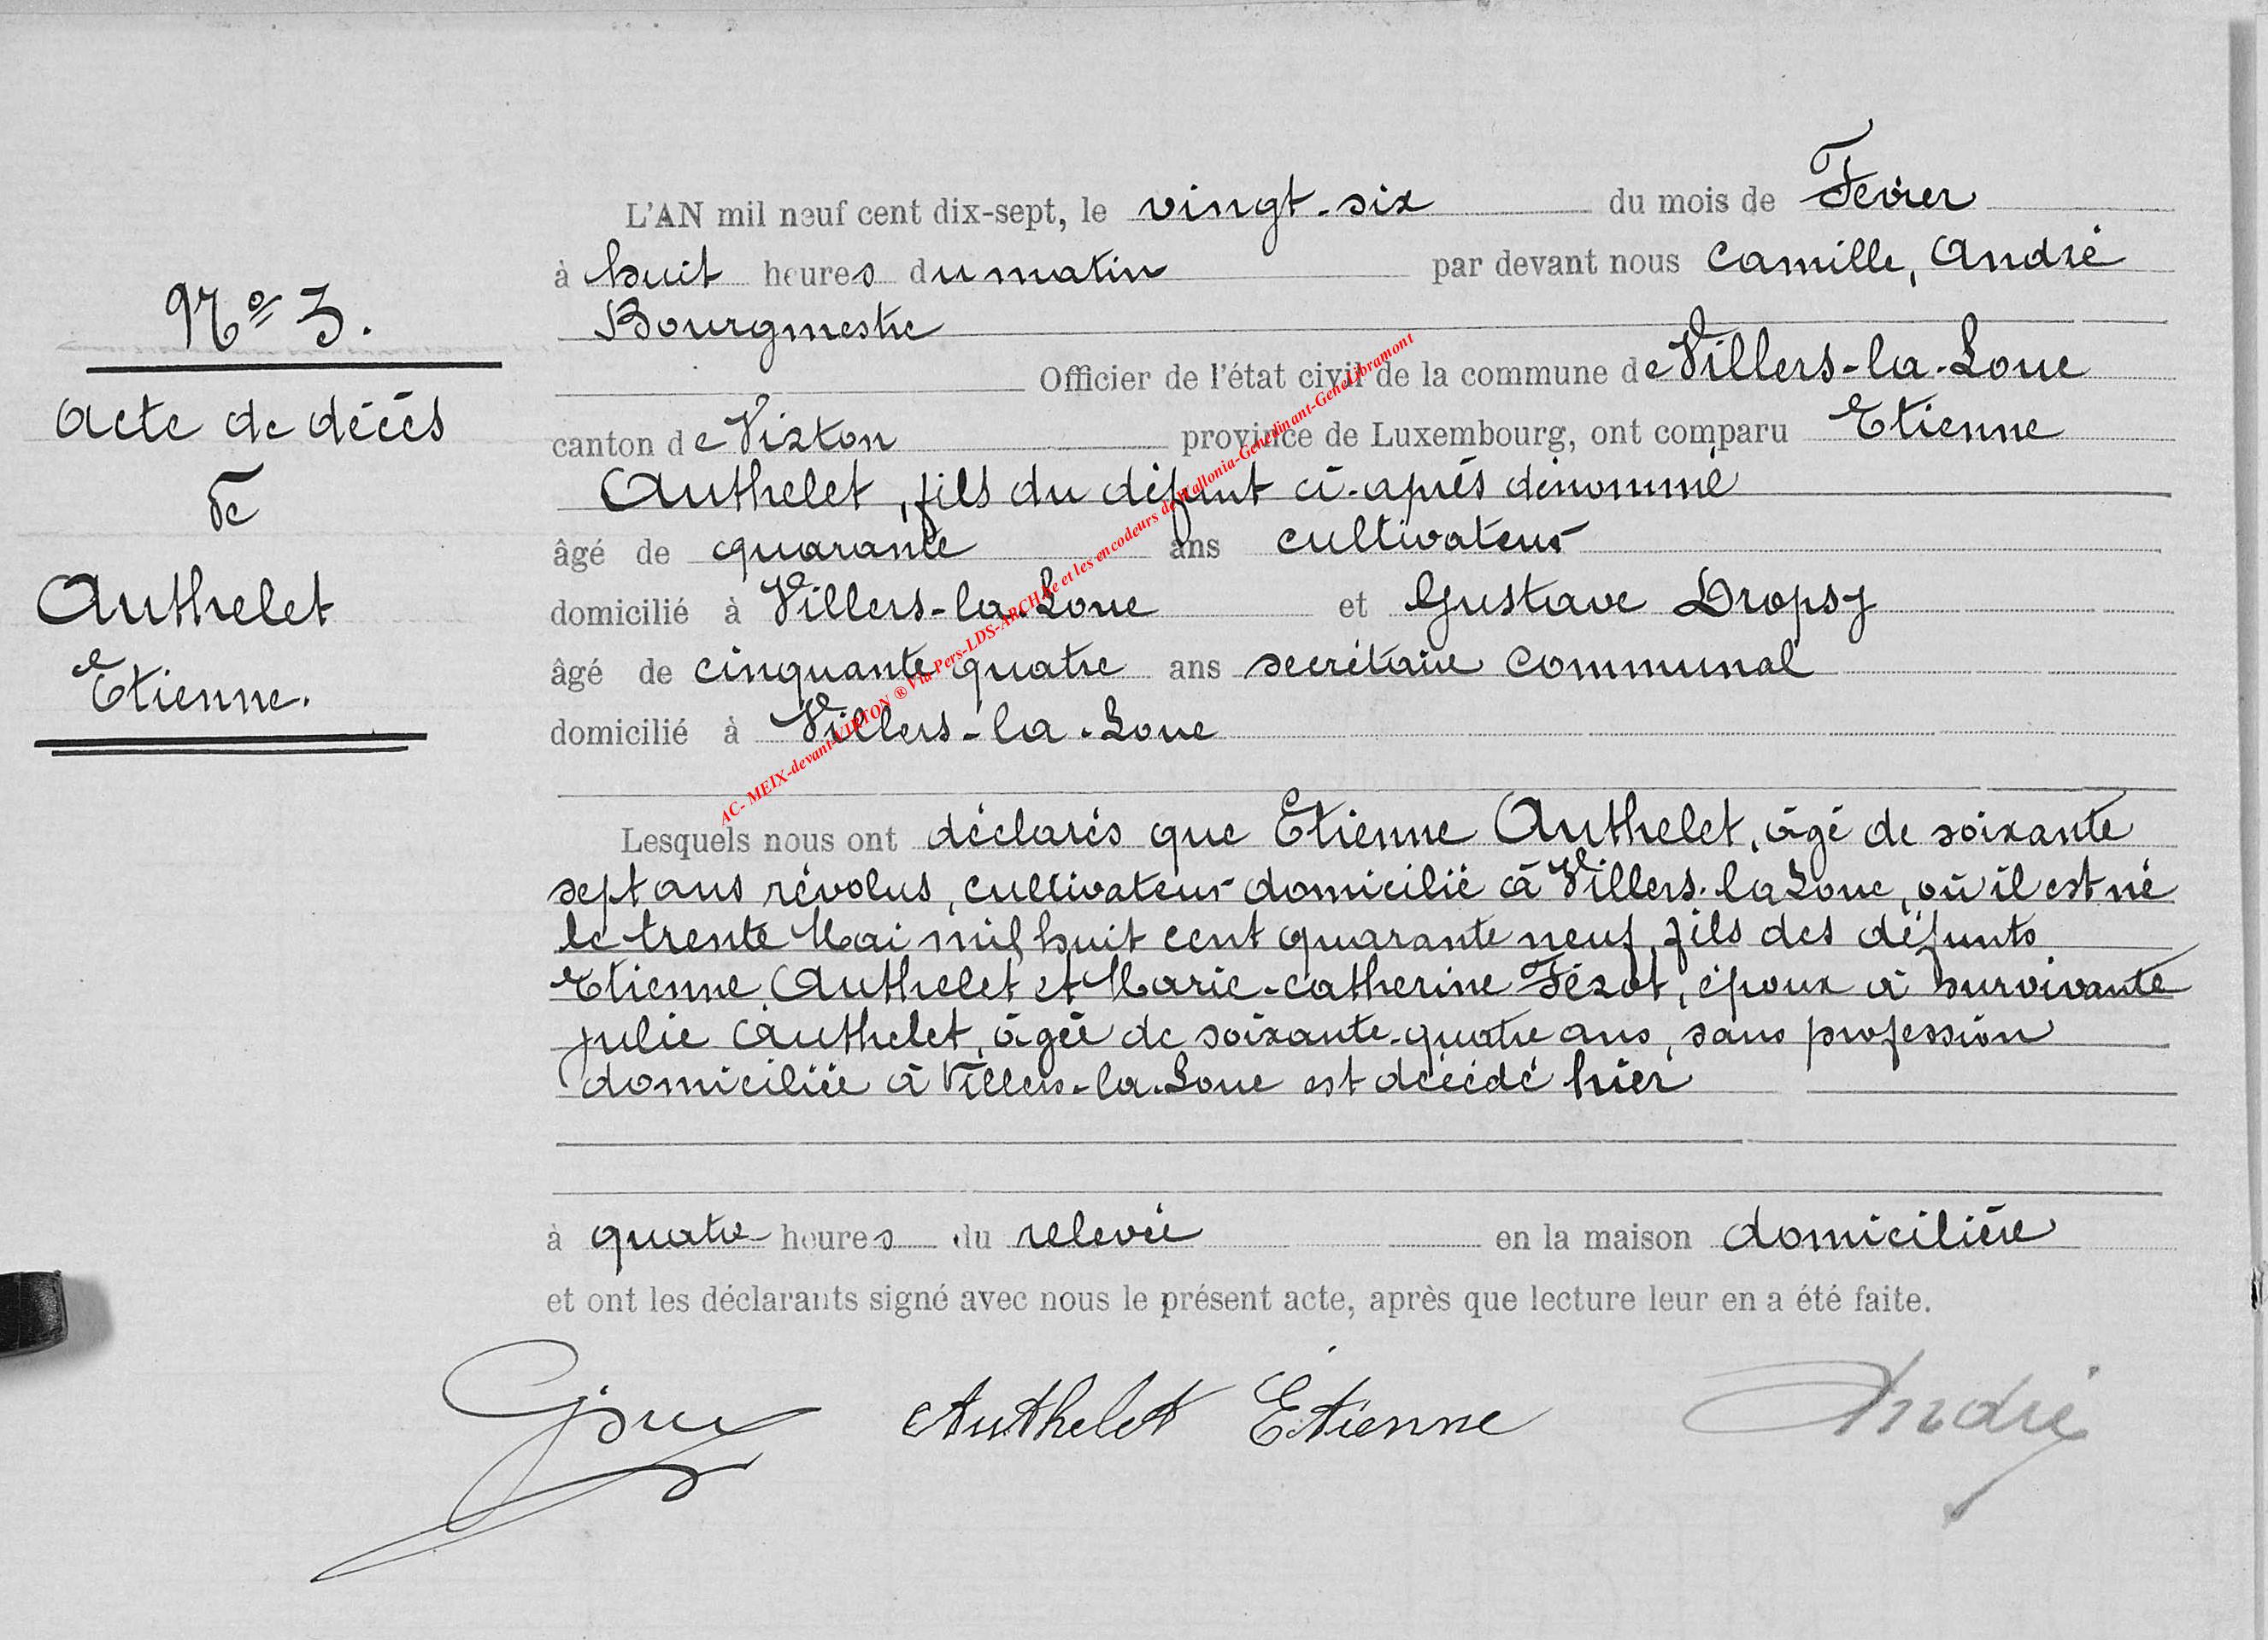 N° 3.
Acte de décès
de
Authelet
Etienne.
L'AN mil neuf cent dix-sept, le vingt-six du mois de Fevrer
à huit heures du matin par devant nous Camille, André
Bourgmestre
Officier de l'état civil de la commune de Villers-la-Loue
canton de Virton province de Luxembourg, ont comparu Etienne
Authelet, fils du défunt ci-après dénommé
âgé de quarante ans cultivateur
domicilié à Villers-la-Loue et Gustave Dropsy
âgé de cinquante quatre ans secrétaire communal
domicilié à Villers-la-Loue
Lesquels nous ont déclarés que Etienne Authelet, âgé de soixante
sept ans révolus, cultivateur domicilié à Villers-la Loue, où il est né
le trente Mai mil huit cent quarante neuf, fils des défunts
Etienne Authelet et Marie-Catherine Fézot, époux à survivante
Julie Authelet, âgée de soixante-quatre ans, sans profession
domiciliée à Villers-la-Loue est décédé hier
à quatre heures du relevée en la maison domicilière
et ont les déclarants signé avec nous le présent acte, après que lecture leur en a été faite.
Authelet Etienne André
AC- MEIX-devant-VIRTON ® Via Pers-LDS-ARCHive et les encodeurs de Wallonia-Genedinant-GeneLibramont